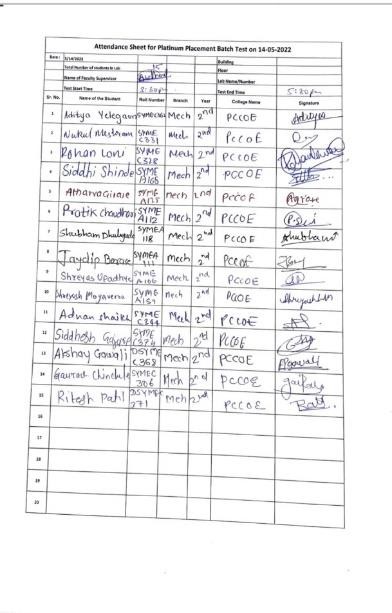 Attendance Sheet for Platinum Placement Batch Test on 14-05-2022
Date: 5/14/2022 Building
Total Number of students in Lab 15 Floor
Name of Faculty Supervisor Lab Name/Number
Test Start Time Test End Time 5:30pm
Sr. No. Name of the Student Roll Number Branch Year College Name Signature
1 Aditya Yelegaon Mech 2nd PCCOE Aditya
2 Nakul Meshram SYME C331 Mech 2nd PCCOE
3 Rohan Loni SYME C328 Mech 2nd PCCOE
4 Siddhi Shinde SYME A168 Mech 2nd PCCOE
5 Atharva Girase SYME Mech 2nd PCCOE
6 Pratik Choudhari SYME A112 Mech 2nd PCCOE
7 Shubham Dhulgude SYMEA 118 Mech 2nd PCCOE Shubham
8 Jaydip SYMEA Mech 2nd PCCOE
9 Shreyas Upadhye SYME A106 Mech 2nd PCCOE
10 Shreyash SYME A151 Mech 2nd PCCOE
11 Adnan Shaikh SYME C344 Mech 2nd PCCOE
12 Siddhesh SYME C326 Mech 2nd PCCOE
13 Akshay Gawali DSYME C368 Mech 2nd PCCOE
14 Gaurav Chinchole SYMEC 306 Mech 2nd PCCOE
15 Ritesh Patil DSYME 371 Mech 2nd PCCOE
16
17
18
19
20